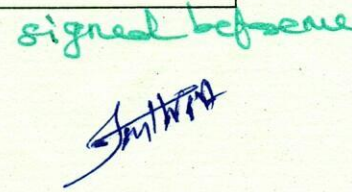 signed before me